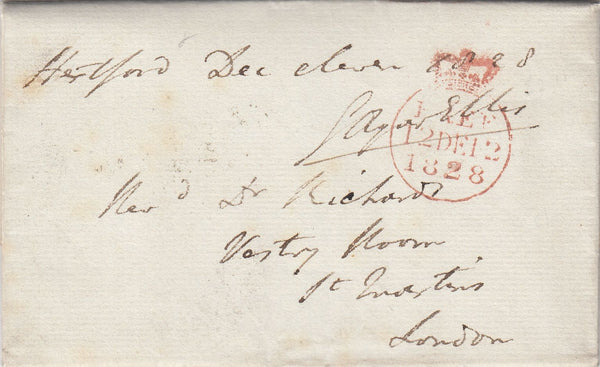 Hertford Dec eleven 1828
G Agar Ellis
FREE
12DE12
1828
Revd Dr Richards
Vestry Room
St Martins
London